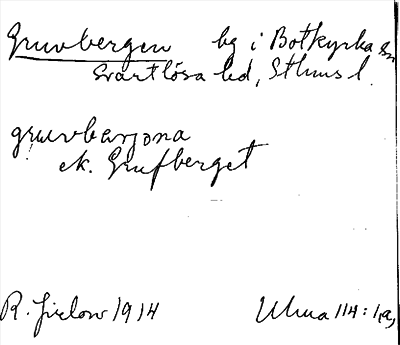 Gruvbergen bg i Botkyrka sn
Svartlösa hd, Sthms l.
gruvbærjona
ek. Grufberget
R. 1914 Ulma 114:1,a,